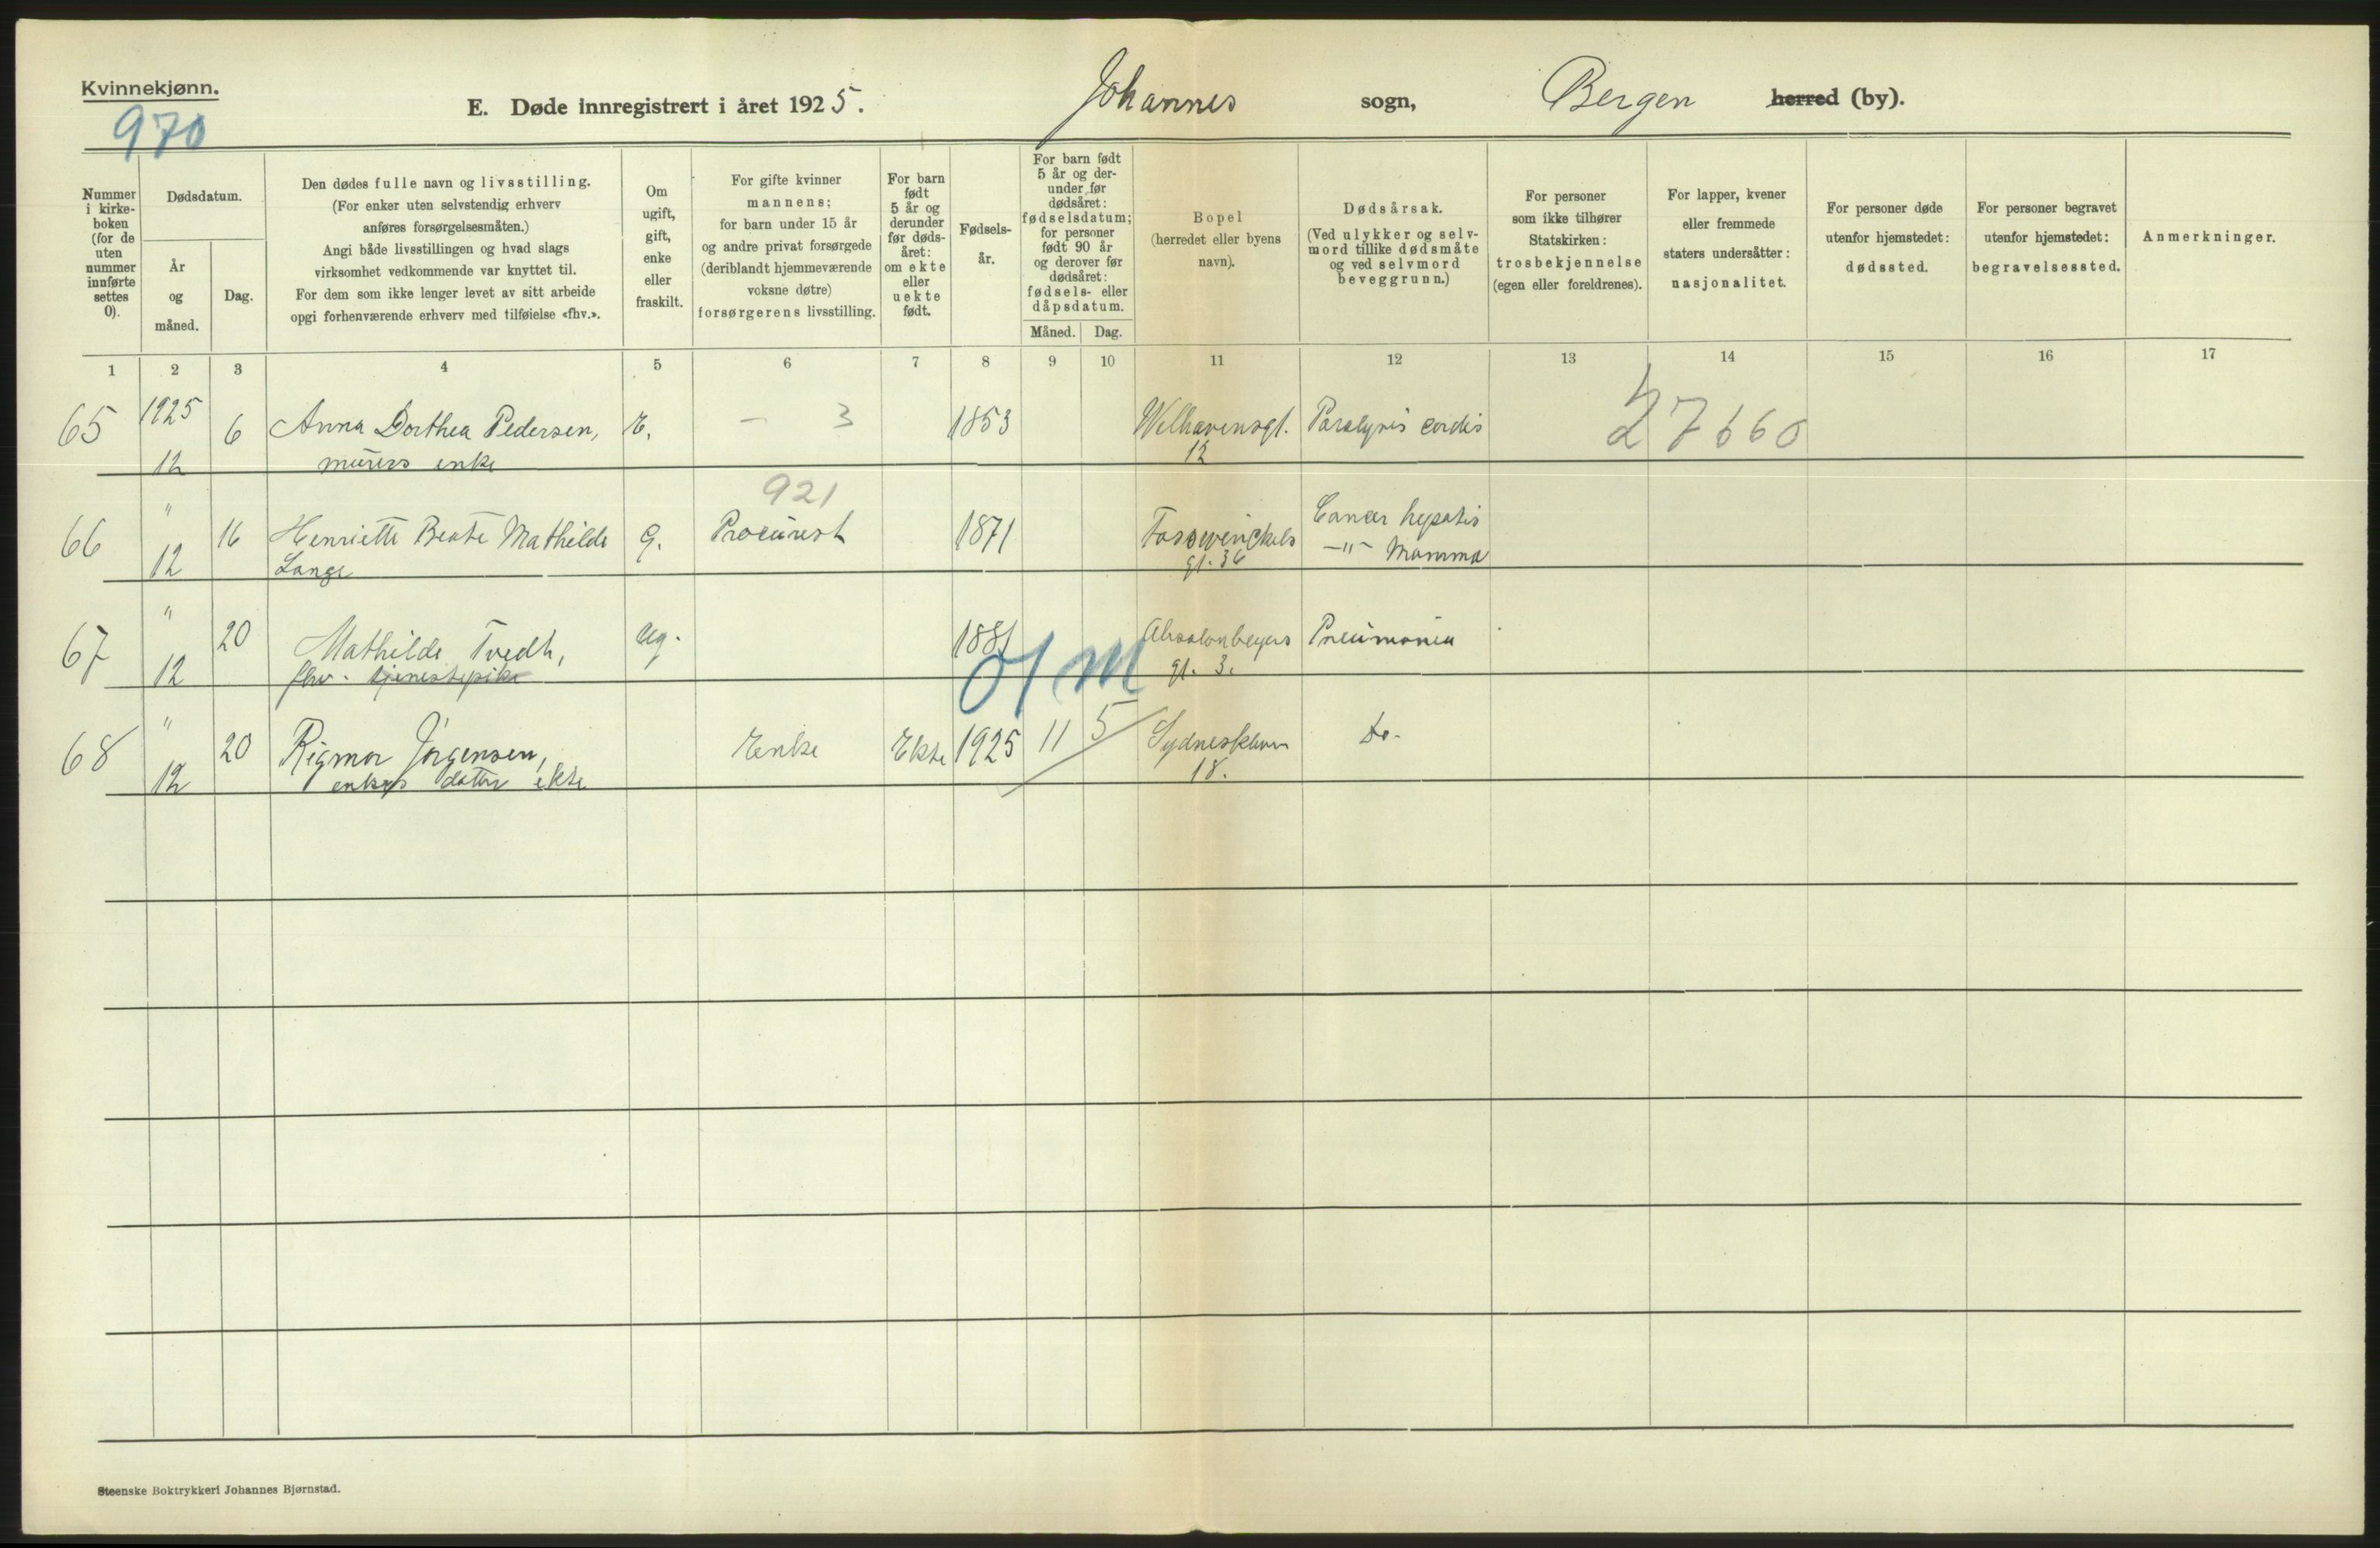 Kvinnekjønn.
970
E. Døde innregistrert i året 1925. Johannes sogn, Bergen herred (by).
Nummer
i kirke-
boken
(for de
uten
nummer
innførte
settes
0).
Dødsdatum.
År
og
måned.
Dag.
Den dødes fulle navn og livsstilling.
(For enker uten selvstendig erhverv
anføres forsørgelsesmåten.)
Angi både livsstillingen og hvad slags
virksomhet vedkommende var knyttet til.
For dem som ikke lenger levet av sitt arbeide
opgi forhenværende erhverv med tilføielse «fhv.».
Om
ugift,
gift,
enke
eller
fraskilt.
For gifte kvinner
mannens;
for barn under 15 år
og andre privat forsørgede
(deriblandt hjemmeværende
voksne døtre)
forsørgerens livsstilling.
For barn
født
5 år og
derunder
før døds-
året:
om ekte
eller
uekte
født.
Fødsels-
år.
For barn født
5 år og der-
under før
dødsåret:
fødselsdatum;
for personer
født 90 år
og derover før
dødsåret:
fødsels- eller
dåpsdatum.
Måned. Dag.
Bopel
(herredet eller byens
navn).
Dødsårsak.
(Ved ulykker og selv-
mord tillike dødsmåte
og ved selvmord
beveggrunn.)
For personer
som ikke tilhører
Statskirken:
trosbekjennelse
(egen eller foreldrenes).
For lapper, kvener
eller fremmede
staters undersåtter:
nasjonalitet.
For personer døde
utenfor hjemstedet:
dødssted.
For personer begravet
utenfor hjemstedet:
begravelsessted.
Anmerkninger.
1 2 3 4 5 6 7 8 9 10 11 12 13 14 15 16 17
65 1925 6 Anna Dorthea Pedersen, E. – 3 1853 Welhavensgt. Paralysis cordis 27660
12 murers enke 12
921
66 " 16 Henriette Beate Mathilde G. Procurist 1871 Fosswinckels Cancer hepatis
12 Lange gt. 36 –"– Mamma
67 " 20 Mathilde Tvedt, Ug. 1881 Absalonbeyers Pneumonia
12 fhv. tjenestepike gt. 3.
68 " 20 Rigmor Jørgensen, Enke Ekte 1925 11 5 Sydneskleven Do.
12 enkes datter ekte 18.
Steenske Boktrykkeri Johannes Bjørnstad.